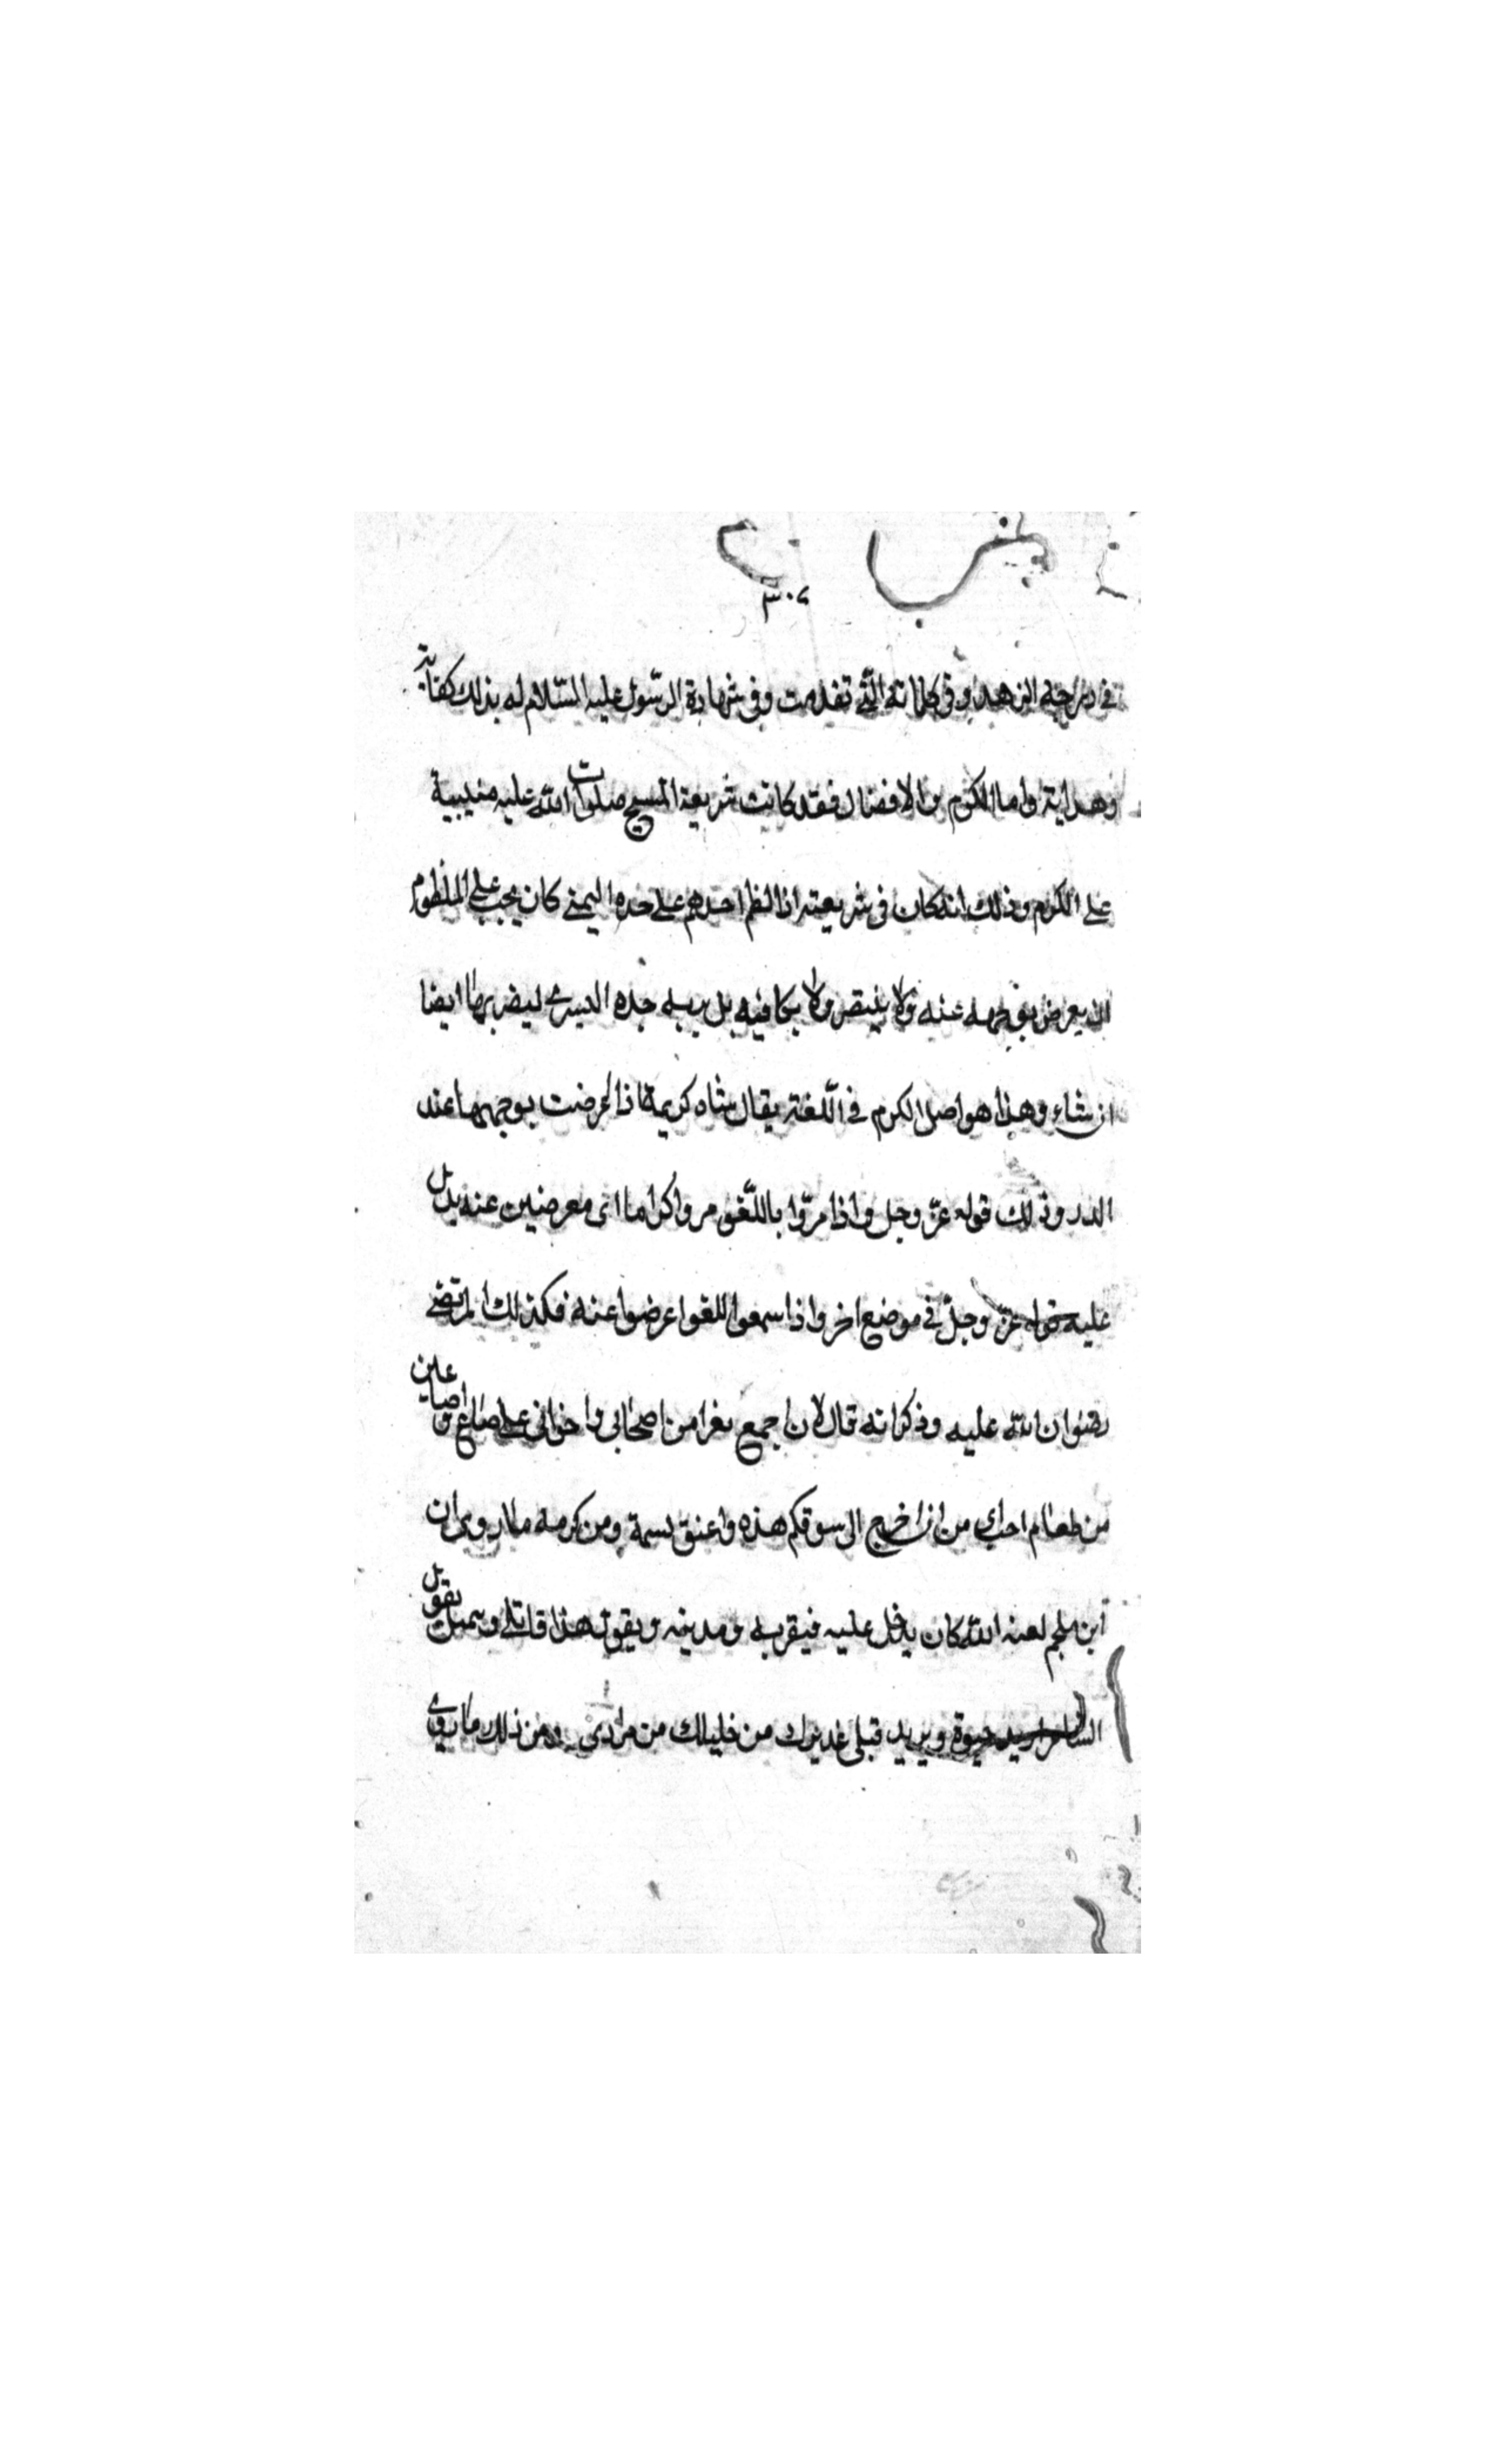 ٣٠٧
في درجة الزهد وفي كلماته الّتي تقدمت وفي شهادة الرّسول عليه السّلام له بذلك كفاية
وهداية واما الكرم والافضال فقد كانت شريعة المسيح صلوات الله عليه مبنية
على الكرم وذلك انه كان في شريعته اذا لطم احدهم على خده اليمنى كان يجب على الملطوم
ان يعرض بوجهه عنه ولا ينتصر ولا يكافيه بل يريه خده اليسرى ليضربها ايضا
ان شاء وهذا هو اصل الكرم في اللّغة يقال شاه كريمة اذا اعرضت بوجهها عند
الدر وذلك قوله عزّ وجل واذا مرّوا باللّغو مروا كراما اى معرضين عنه يدل
عليه قوله عزّ وجلّ في موضع اخر واذا سمعوا اللغو اعرضوا عنه فكذلك المرتضى
رضوان الله عليه وذكر انه قال لان اجمع نفرا من اصحابي واخواني على صاع او صاعين
من طعام احب الى من ان اخرج الى سوقكم هذه واعتق نسمة ومن كرمه ما روى ان
ابن ملجم لعنه الله كان يدخل عليه فيقربه ويدنيه ويقول هذا قاتلى ويتمثل بقول
الشاعر اريد حيوة ويريد قتلى عذيرك من خليلك من مرادى ومن ذلك ما روى